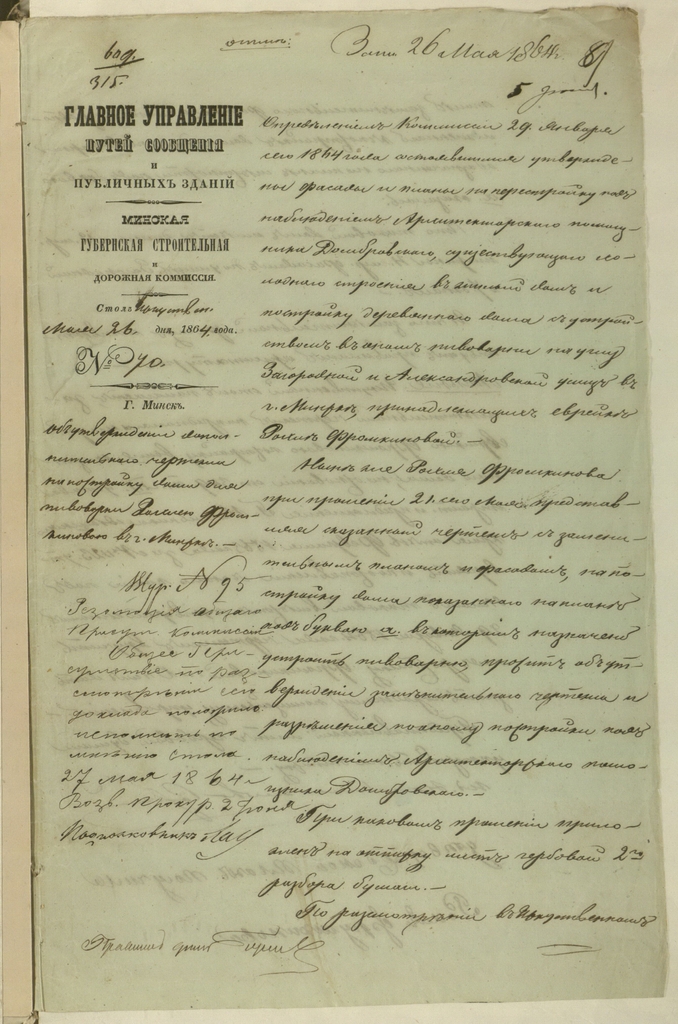 315.
Зап. 26 Мая 1864 г.
ГЛАВНОЕ УПРАВЛЕНІЕ
ПУТЕЙ СООБЩЕНІЯ
И
ПУБЛИЧНЫХЪ ЗДАНІЙ
МИНСКАЯ
ГУБЕРНСКАЯ СТРОИТЕЛЬНАЯ
И
ДОРОЖНАЯ КОММИССІЯ.
Столъ
Мая 26 дня, 1864 года.
№ 70.
Г. Минскъ.
объ утвержденіи допол-
нительнаго чертежа
на постройку дома для
пивоварни Рохлею Фром-
киновою въ г. Минскѣ.—
Жур. № 95
Резолюція общаго
Присут. Коммиссіи
Общее При-
сутствіе по раз-
смотрѣніи сего
доклада положило
исполнить по
мнѣнію стола.
27 мая 1864 г.
Возв. Прокур. 2 Іюня
Подполковникъ
Опредѣленіемъ Коммиссіи 29 Января
сего 1864 года состоявшимся утвержде-
ны фасады и планы на перестройку подъ
наблюденіемъ Архитекторскаго помощ-
ника Домбровскаго, существующаго хо-
лоднаго строенія въ жилой домъ и
постройку деревяннаго дома съ устрой-
ствомъ въ ономъ пивоварни на углу
Загородной и Александровской улицъ въ
г. Минскѣ, принадлежащихъ еврейкѣ
Фромкиновой.—
Нынѣ же Фромкинова
при прошеніи 21 сего Мая, представ-
ляя сказанный чертежъ съ замѣни-
тельнымъ планомъ и фасадомъ, на по-
стройку дома показаннаго на планѣ
подъ буквою а. въ которомъ назначено
устроить пивоварню, проситъ объ ут-
вержденіи замѣнительнаго чертежа и
разрѣшенія по оному постройки подъ
наблюденіемъ Архитекторскаго помо-
щника Домбровскаго.—
При каковомъ прошеніи прило-
женъ на отписку листъ гербовой 2го
разбора бумаги.—
По разсмотрѣніи въ Искуственномъ